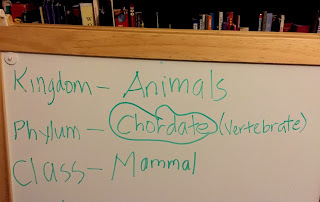 Kingdom - Animals
Phylum - Chordate (Vertebrate)
Class - Mammal